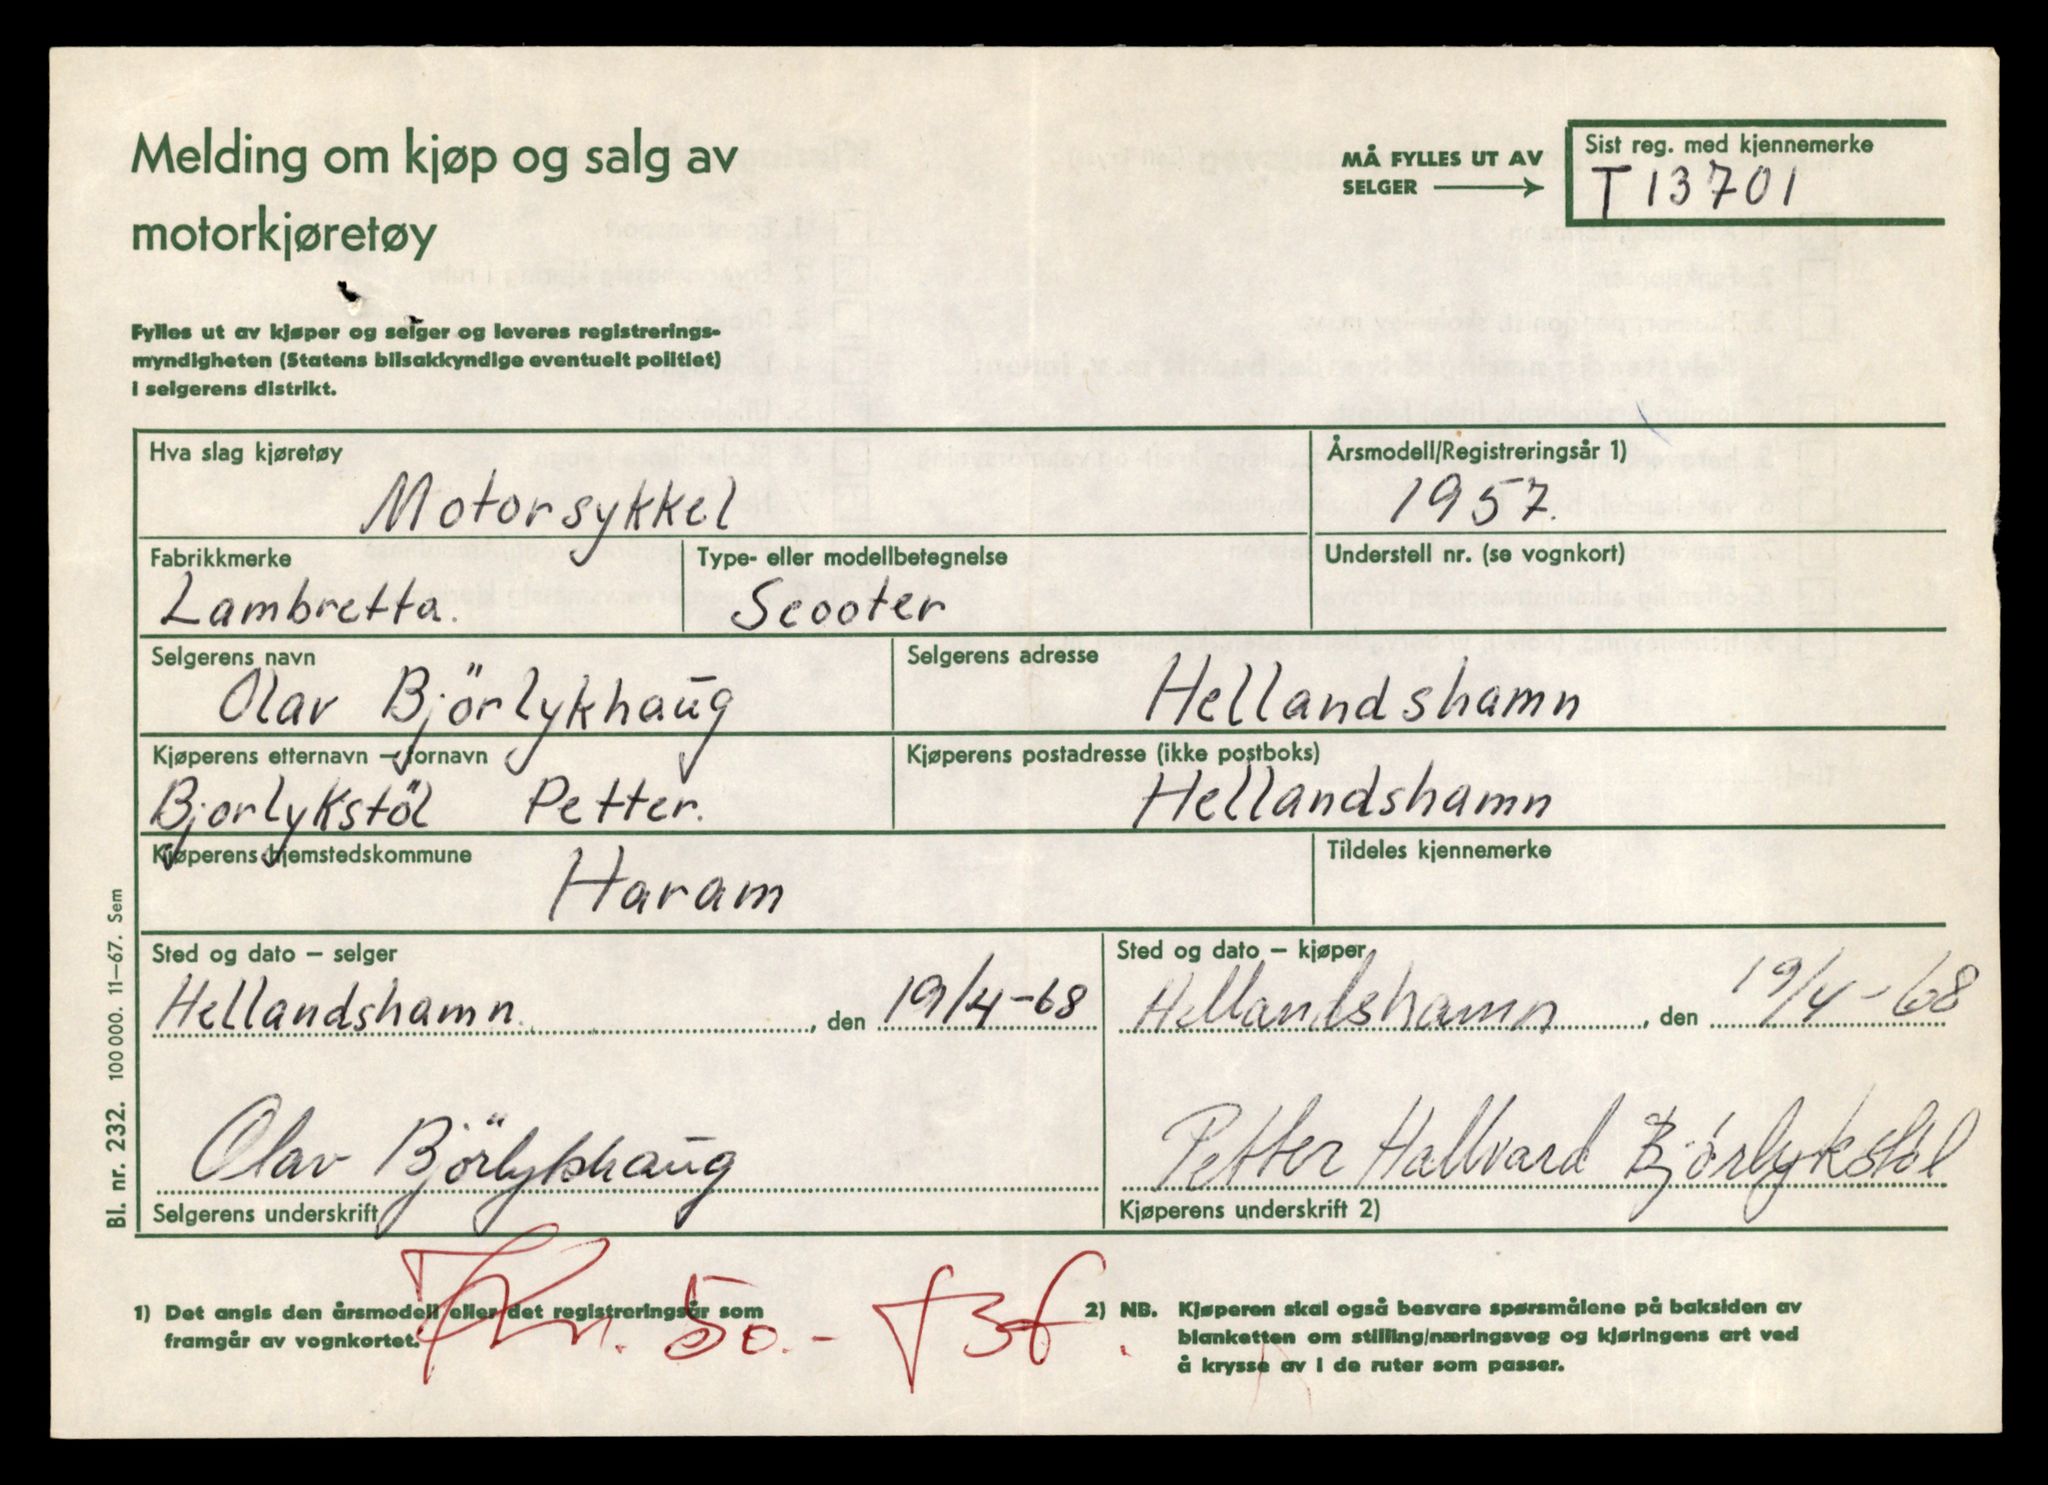 Melding om kjøp og salg av
motorkjøretøy
MÅ FYLLES UT AV
SELGER
Sist reg. med kjennemerke
T 13701
Fylles ut av kjøper og selger og leveres registrerings-
myndigheten (Statens bilsakkyndige eventuelt politiet)
i selgerens distrikt.
Hva slag kjøretøy
Motorsykkel
Årsmodell/Registreringsår 1)
1957.
Fabrikkmerke
Lambretta.
Type- eller modellbetegnelse
Scooter
Understell nr. (se vognkort)
Selgerens navn
Olav Björlykhaūg
Selgerens adresse
Hellandshamn
Kjøperens etternavn – fornavn
Bjorlykstöl Petter.
Kjøperens postadresse (ikke postboks)
Hellandshamn
Kjøperens hjemstedskommune
Haram
Tildeles kjennemerke
Sted og dato – selger
Hellandshamn. , den 19/4-68
Sted og dato – kjøper
Hellandshamn , den 19/4-68
Olav Björlykhaūg
Selgerens underskrift
Petter Hallvard Bjørlykstøl
Kjøperens underskrift 2)
Kr. 50.-
1) Det angis den årsmodell eller det registreringsår som
framgår av vognkortet.
2) NB. Kjøperen skal også besvare spørsmålene på baksiden av
blanketten om stilling/næringsveg og kjøringens art ved
å krysse av i de ruter som passer.
Bl. nr. 232. 100 000. 11–67. Sem